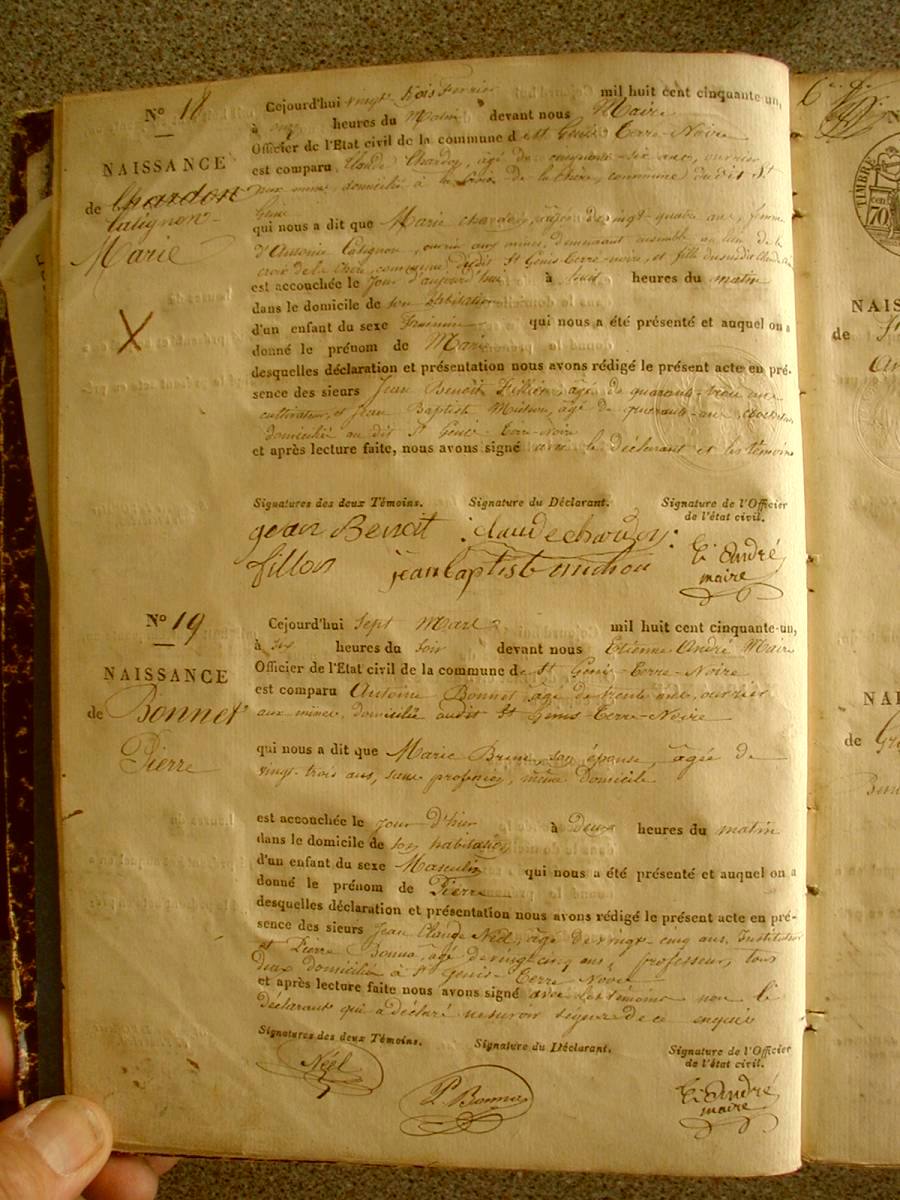 No 18
NAISSANCE
de Chardon
Catignon
Marie
Cejourd'hui vingt trois Fevrier mil huit cent cinquante-un,
à onze heures du Matin devant nous Maire
Officier de l'Etat civil de la commune de St Genis Terre-Noire
est comparu Claude Chardon, agé de cinquante-six ans, ouvrier
aux mines, domicilié à la Croix de la chèze, commune du dit St
Genis
qui nous a dit que Marie chardon, agée de vingt-quatre ans, femme
d'Antoine Catignon, ouvrier aux mines, demeurant ensemble au lieu de la
croix de la chèze, commune du dit St Genis-Terre-noire, et fille du susdit Claude
est accouchée le Jour d'aujourd'hui à huit heures du matin
dans le domicile de son habitation
d'un enfant du sexe Feminin qui nous a été présenté et auquel on a
donné le prénom de Marie
desquelles déclaration et présentation nous avons rédigé le présent acte en pré-
sence des sieurs Jean Benoît Fillon, âgé de quarante-trois ans
cultivateur, et Jean Baptiste Michou, âgé de quarante-ans,
domiciliés au dit St Genis-Terre-Noire
et après lecture faite, nous avons signé avec le déclarant et les témoins
Signatures des deux Témoins. Signature du Déclarant. Signature de l'Officier
de l'état civil.
jean Benoit claude chardon
fillon jean baptist michou
E. André
maire
No 19
NAISSANCE
de Bonnet
Pierre
Cejourd'hui Sept Mars mil huit cent cinquante-un,
à Six heures du Soir devant nous Etienne André Maire
Officier de l'Etat civil de la commune de St Genis-Terre-Noire
est comparu Antoine Bonnet agé de trente ans, ouvrier
aux mines, domicilié audit St Genis-Terre-Noire
qui nous a dit que Marie Brun, son épouse, agée de
vingt-trois ans, sans profession, même domicile
est accouchée le jour d'hui à Deux heures du matin
dans le domicile de son habitation
d'un enfant du sexe Masculin qui nous a été présenté et auquel on a
donné le prénom de Pierre
desquelles déclaration et présentation nous avons rédigé le présent acte en pré-
sence des sieurs Jean Claude Néel, âgé de vingt-cinq ans, Instituteur
et Pierre Bonna, agé de vingt cinq ans, professeur, tous
deux domiciliés à St Genis-Terre Noire
et après lecture faite nous avons signé avec les témoins non le
déclarant qui a déclaré ne savoir signer de ce enquis
Signatures des deux Témoins. Signature du Déclarant. Signature de l'Officier
de l'état civil.
Néel
P. Bonna
E. André
maire
TIMBRE
70 cen
NAIS
de
NAI
de